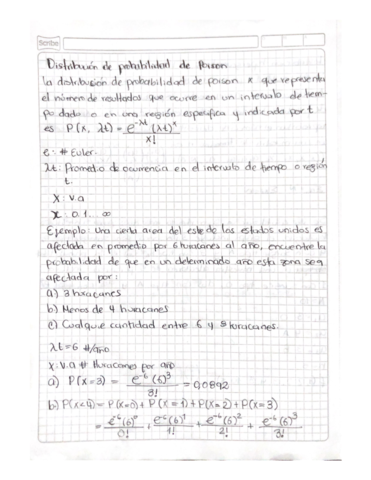 Scribe
Distribución de probabilidad de Poison
La distribución de probabilidad de poison x que representa
el número de resultados que ocurre en un intervalo de tiem-
po dado o en una región especifica y indicada por t
es P(x, λt) = e^-λt (λt)^x / x!
e: # Euler.
λt: Promedio de ocurrencia en el intervalo de tiempo o región
t.
X: v.a
x: 0,1, ∞
Ejemplo: Una cierta area del este de los estados unidos es
afectada en promedio por 6 huracanes al año, encuentre la
probabilidad de que en un determinado año esta zona sea
afectada por:
a) 3 huracanes
b) Menos de 4 huracanes
c) Cualquie cantidad entre 6 y 8 huracanes.
λt = 6 #/año
X: v.a # Huracanes por año
a) P(x=3) = e^-6 (6)^3 / 3! = 0,0892
b) P(x<4) = P(x=0) + P(x=1) + P(x=2) + P(x=3)
= e^-6 (6)^0 / 0! + e^-6 (6)^1 / 1! + e^-6 (6)^2 / 2! + e^-6 (6)^3 / 3!